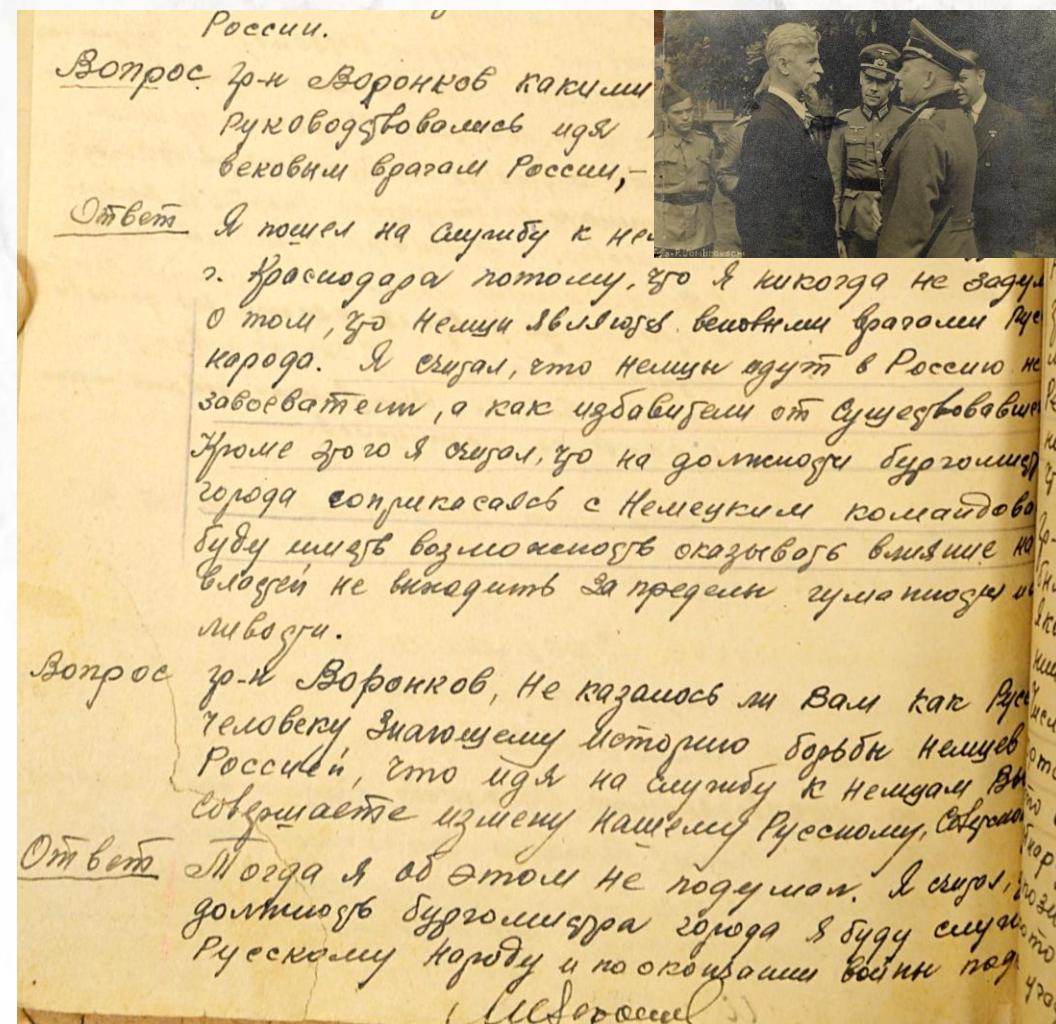 России.
Вопрос гр-н Воронков какими
Руководствовались идя
вековым врагам России,-
Ответ Я пошел на службу к
г. Краснодара потому, что я никогда не заду
о том, что Немцы являются вековыми врагами Рус
народа. Я считал, что немцы идут в Россию не
завоеватели, а как избавители от существовавше
Кроме этого я считал, что на должности бургомист
города соприкасаясь с Немецким командова
буду иметь возможность оказывать влияние на
властей не выходить за пределы гуманности и
ливости.
Вопрос гр-н Воронков, Не казалось ли Вам как Русс
человеку Знающему Историю борьбы немцев
Россией, что идя на службу к немцам Вы
совершаете измену нашему Русскому, Советско
Ответ Тогда я об этом не подумал. Я считал,
должность бургомистра города я буду служ
Русскому народу и по окончании войны под